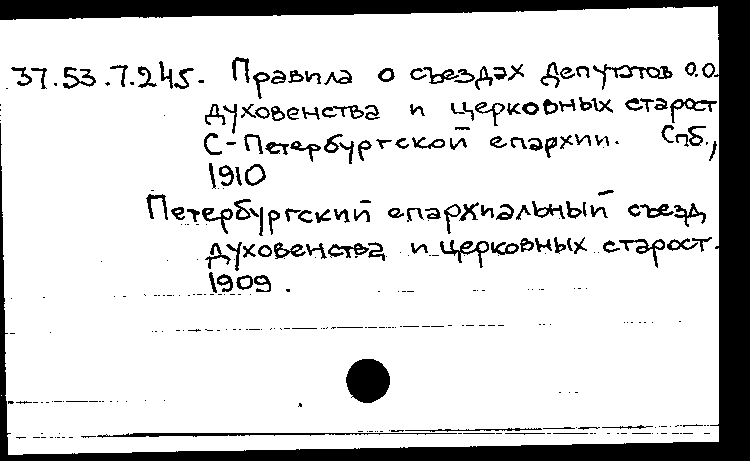 37.53.7.245. Правила о съездах депутатов о.о.
духовенства и церковных старост
С-Петербургской епархии. Спб.,
1910
Петербургский епархиальный съезд
духовенства и церковных старост.
1909.